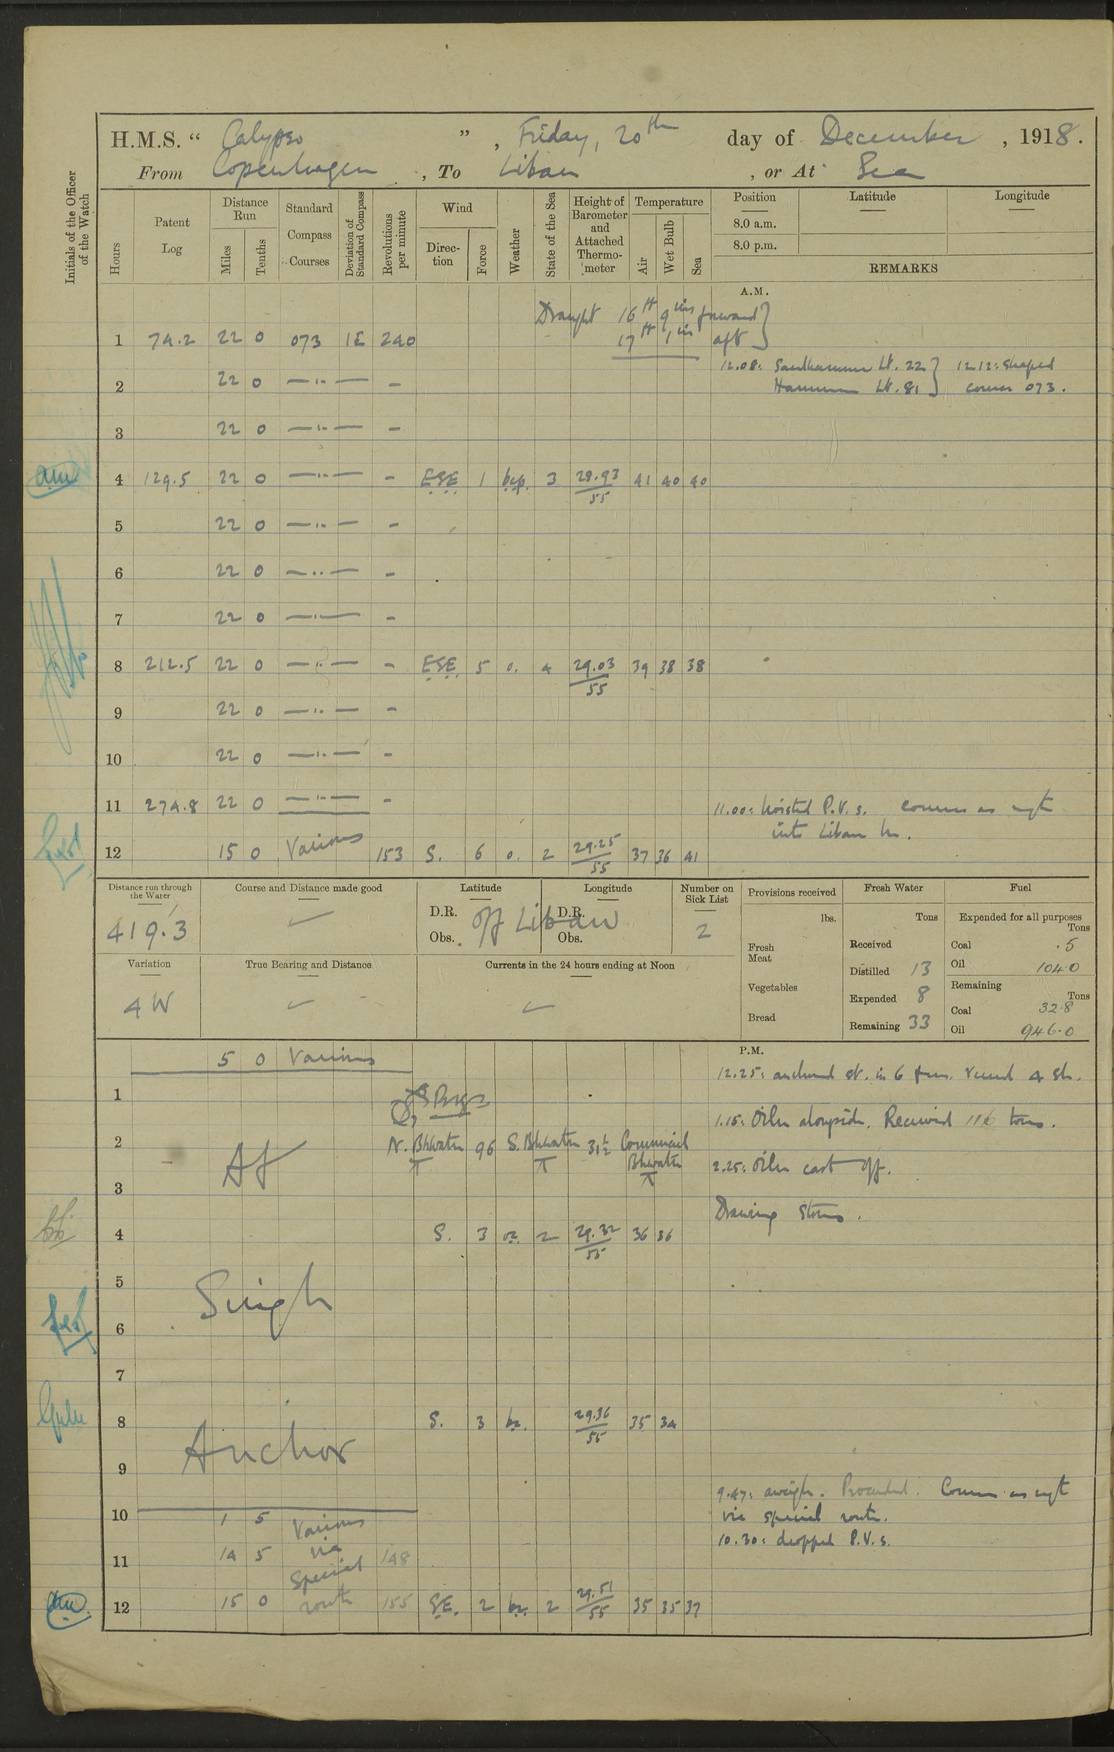 H.M.S. “ Calypso ” , Friday, 20th day of December , 1918.
From Copenhagen , To Libau , or At Sea
Initials of the Officer of the Watch
Hours
Patent Log
Distance Run
Miles
Tenths
Standard Compass Courses
Deviation of Standard Compass
Revolutions per minute
Wind
Direc-tion
Force
Weather
State of the Sea
Height of Barometer and Attached Thermo-meter
Temperature
Air
Wet Bulb
Sea
Position
Latitude
Longitude
8.0 a.m.
8.0 p.m.
REMARKS
A.M.
Draught 16 ft 9 ins forward }
17 ft 1 in aft
1 74.2 22 0 073 1E 240
12.08: Lt. 22 } 12.12: shaped
Lt. 81 } course 073.
2 22 0 —..— -
3 22 0 —..— -
4 129.5 22 0 —..— - ESE 1 bcp. 3 28.93/55 41 40 40
5 22 0 —..— -
6 22 0 —..— -
7 22 0 —..— -
8 212.5 22 0 —..— - ESE. 5 o. 4 29.03/55 39 38 38
9 22 0 —..— -
10 22 0 —..— -
11 274.8 22 0 —..— -
11.00: hoisted P.V.s. courses as reqt
into Libau hr.
12 15 0 Various 153 S. 6 o. 2 29.25/55 37 36 41
Distance run through the Water
419.3
Course and Distance made good
Latitude
D.R.
Obs.
Longitude
D.R.
Obs.
off Libau
Number on Sick List
2
Provisions received
lbs.
Fresh Meat
Vegetables
Bread
Fresh Water
Tons
Received
Distilled 13
Expended 8
Remaining 33
Fuel
Expended for all purposes
Tons
Coal .5
Oil 104.0
Remaining
Tons
Coal 32.8
Oil 946.0
Variation
4 W
True Bearing and Distance
Currents in the 24 hours ending at Noon
P.M.
5 0 Various
12.25: anchored st. in 6 fms. veered 4 sh.
1
Bngs
1.15: Oiler alongside. Received 116 tons.
2
N. Bkwater 96 S. Bkwater 31½ Commercial Bkwater
At
2.25: Oiler cast off.
3
Drawing stores.
4 S. 3 oz. 2 29.32/55 36 36
5
Single
6
7
8 S. 3 bz. 29.36/55 35 34
Anchor
9
9.47: aweigh. Proceeded. Courses as reqt
via special route.
10 1 5 Various
10.30: dropped P.V.s.
11 14 5 via special 148
12 15 0 route 155 SE. 2 bz. 2 29.51/55 35 35 37